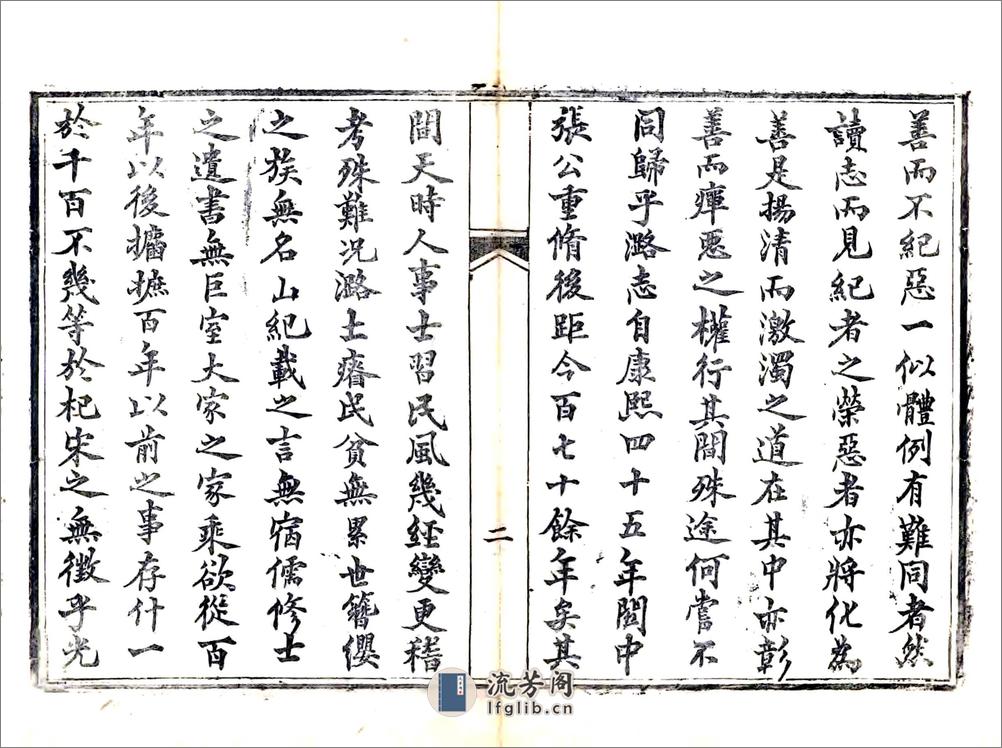 善而不紀惡一似體例有難同者然
讀志而見紀者之榮惡者亦將化為
善是揚清而激濁之道在其中亦彰
善而癉惡之權行其間殊途何嘗不
同歸乎潞志自康熙四十五年閩中
張公重脩後距今百七十餘年矣其
二
間天時人事士習民風幾經變更稽
考殊難況潞土瘠民貧無累世簪纓
之族無名山紀載之言無宿儒修士
之遺書無巨室大家之家乘欲從百
年以後攟摭百年以前之事存什一
於千百不幾等於杞宋之無徵乎光
流芳阁
lfglib.cn